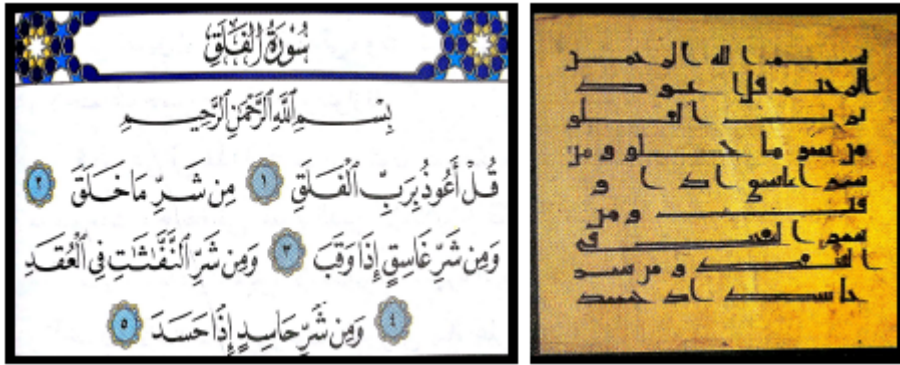 سُورَةُ الْفَلَقِ
بِسْمِ اللَّهِ الرَّحْمَٰنِ الرَّحِيمِ
قُلْ أَعُوذُ بِرَبِّ الْفَلَقِ ١ مِن شَرِّ مَا خَلَقَ ٢
وَمِن شَرِّ غَاسِقٍ إِذَا وَقَبَ ٣ وَمِن شَرِّ النَّفَّٰثَٰتِ فِي الْعُقَدِ
٤ وَمِن شَرِّ حَاسِدٍ إِذَا حَسَدَ ٥
بسم الله الرحمن
الرحيم قل اعوذ
برب الفلق
من شر ما خلق ومن
شر غاسق اذا و
قب ومن
شر النفثت في
العقد ومن شر
حاسد اذا حسد